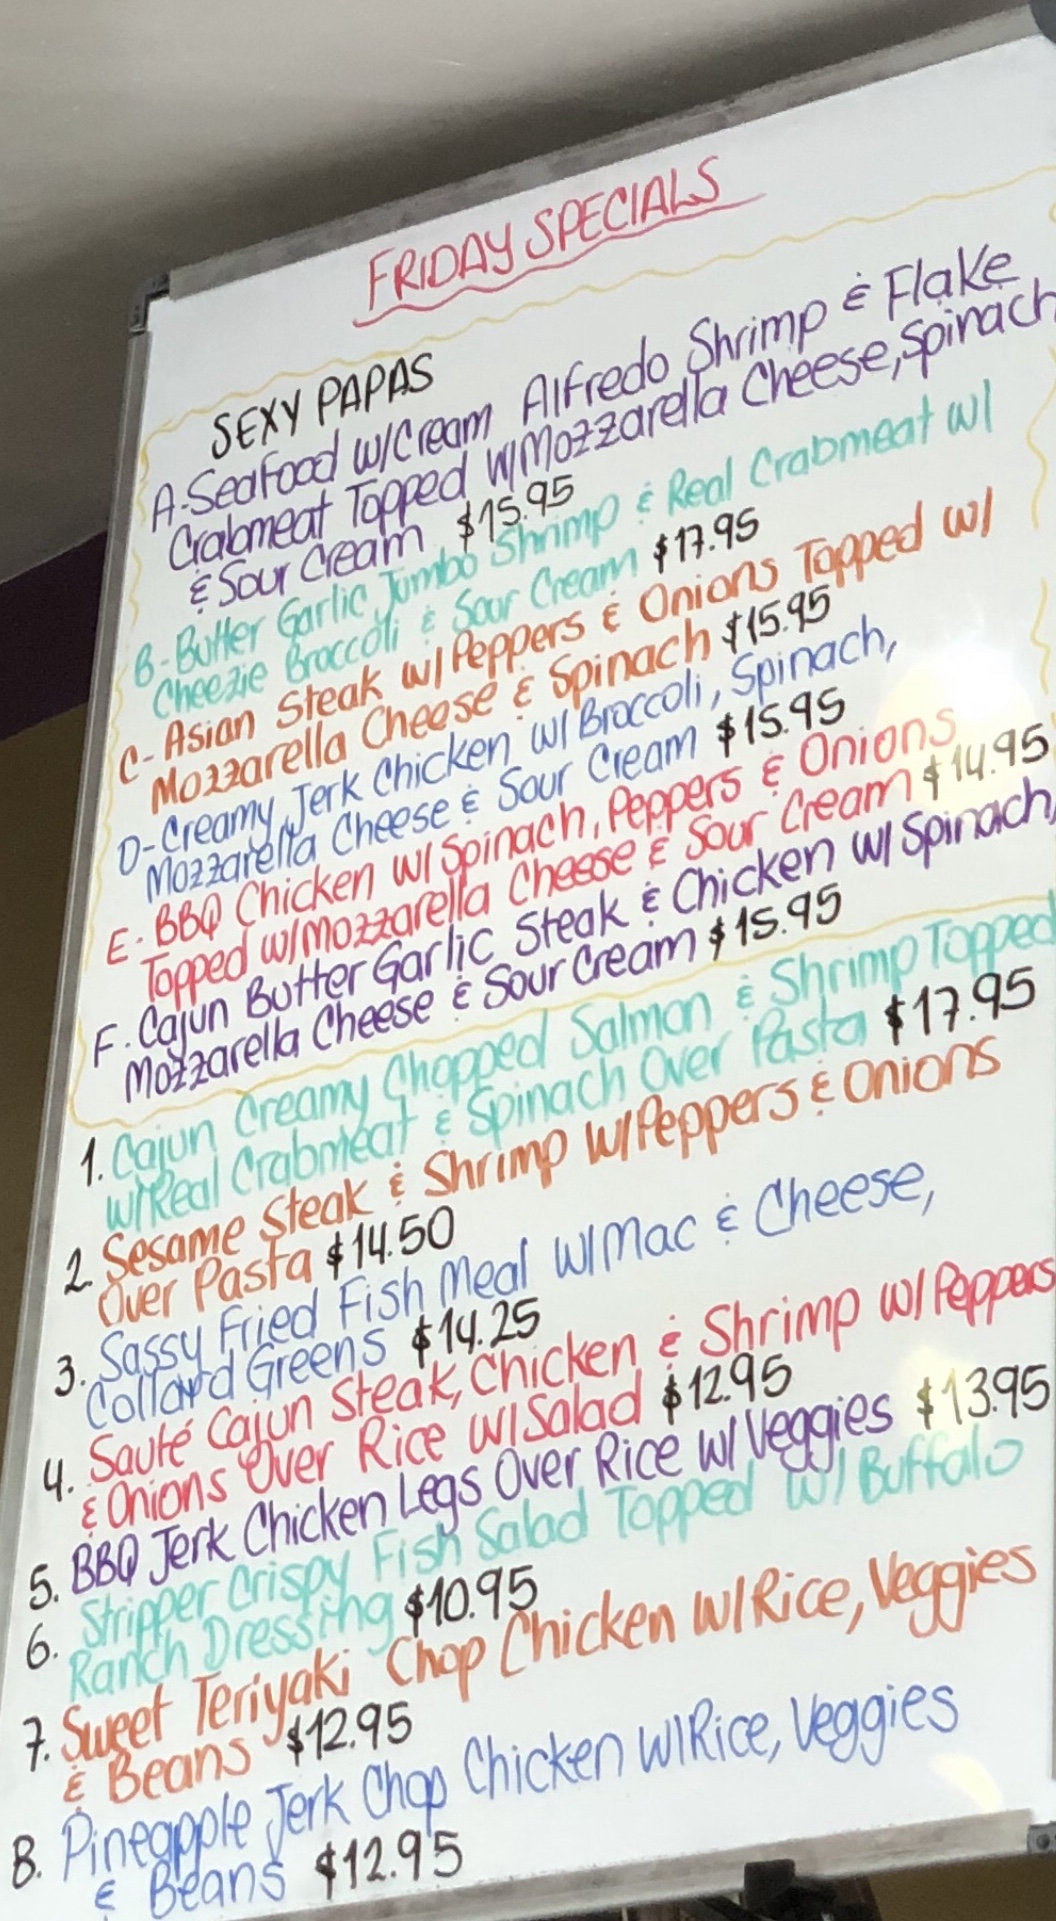 FRIDAY SPECIALS
SEXY PAPAS
A-Seafood w/Cream Alfredo Shrimp & Flake
Crabmeat Topped w/Mozzarella Cheese, Spinach
& Sour Cream $15.95
B-Butter Garlic Jumbo Shrimp & Real Crabmeat w/
Cheezie Broccoli & Sour Cream $17.95
C-Asian Steak w/Peppers & Onions Topped w/
Mozzarella Cheese & Spinach $15.95
D-Creamy Jerk Chicken w/Broccoli, Spinach,
Mozzarella Cheese & Sour Cream $15.95
E-BBQ Chicken w/Spinach, Peppers & Onions
Topped w/Mozzarella Cheese & Sour Cream $14.95
F. Cajun Butter Garlic Steak & Chicken w/Spinach,
Mozzarella Cheese & Sour Cream $15.95
1. Cajun Creamy Chopped Salmon & Shrimp Topped
w/Real Crabmeat & Spinach Over Pasta $17.95
2. Sesame Steak & Shrimp w/Peppers & Onions
Over Pasta $14.50
3. Sassy Fried Fish Meal w/Mac & Cheese,
Collard Greens $14.25
4. Sauté Cajun Steak, Chicken & Shrimp w/Peppers
& Onions Over Rice w/Salad $12.95
5. BBQ Jerk Chicken Legs Over Rice w/Veggies $13.95
6. Stripper Crispy Fish Salad Topped w/Buffalo
Ranch Dressing $10.95
7. Sweet Teriyaki Chop Chicken w/Rice, Veggies
& Beans $12.95
8. Pineapple Jerk Chop Chicken w/Rice, Veggies
& Beans $12.95